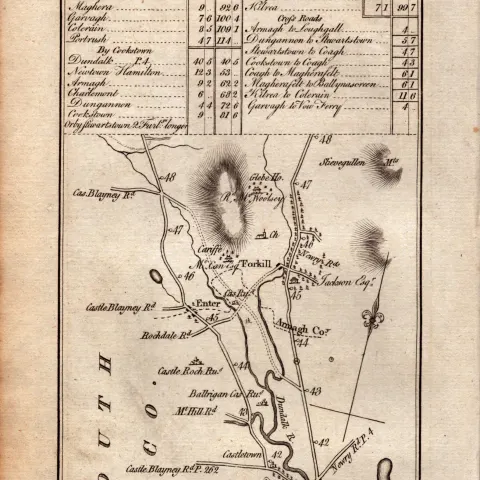 Maghera 9 92 6
Garvagh 7 6 100 4
Colerain 8 5 109 1
Portrush 4 7 114
By Cookstown
Dundalk P. 4 40 5 40 5
Newtown Hamilton 12 3 53
Armagh 9 2 62 2
Charlemont 6 68 2
Dungannon 4 4 72 6
Cookstown 9 81 6
Or by Stewartstown 2 Furls. longer
Kilrea 7 1 99 7
Cross Roads
Armagh to Loughgall 4
Dungannon to Stewartstown 5 7
Stewartstown to Coagh 4 7
Cookstown to Coagh 4 3
Coagh to Magherafelt 6 1
Magherafelt to Ballynascreen 6 1
Kilrea to Colerain 11 6
Garvagh to Vow Ferry 4
48
48
Slievegullen Mts.
Glebe Ho.
47
Cas. Blayney Rd.
R. M. Woolsey
47
Ch
46
Cariffe
Newry Rd.
Forkill
46
Jackson Esqr.
45
Cas. Ry.
Castle Blayney Rd.
Enter
45
Armagh Coy.
Rochdale Rd.
44
Castle Roch Ru.
44
Ballrigan Cas. Ru.
43
Dundalk R.
Mt. Hill Rd.
43
42
Newry Rd. P. 4
Castletown
42
Castle Blayney Rd. P. 262
OUTH
CO.